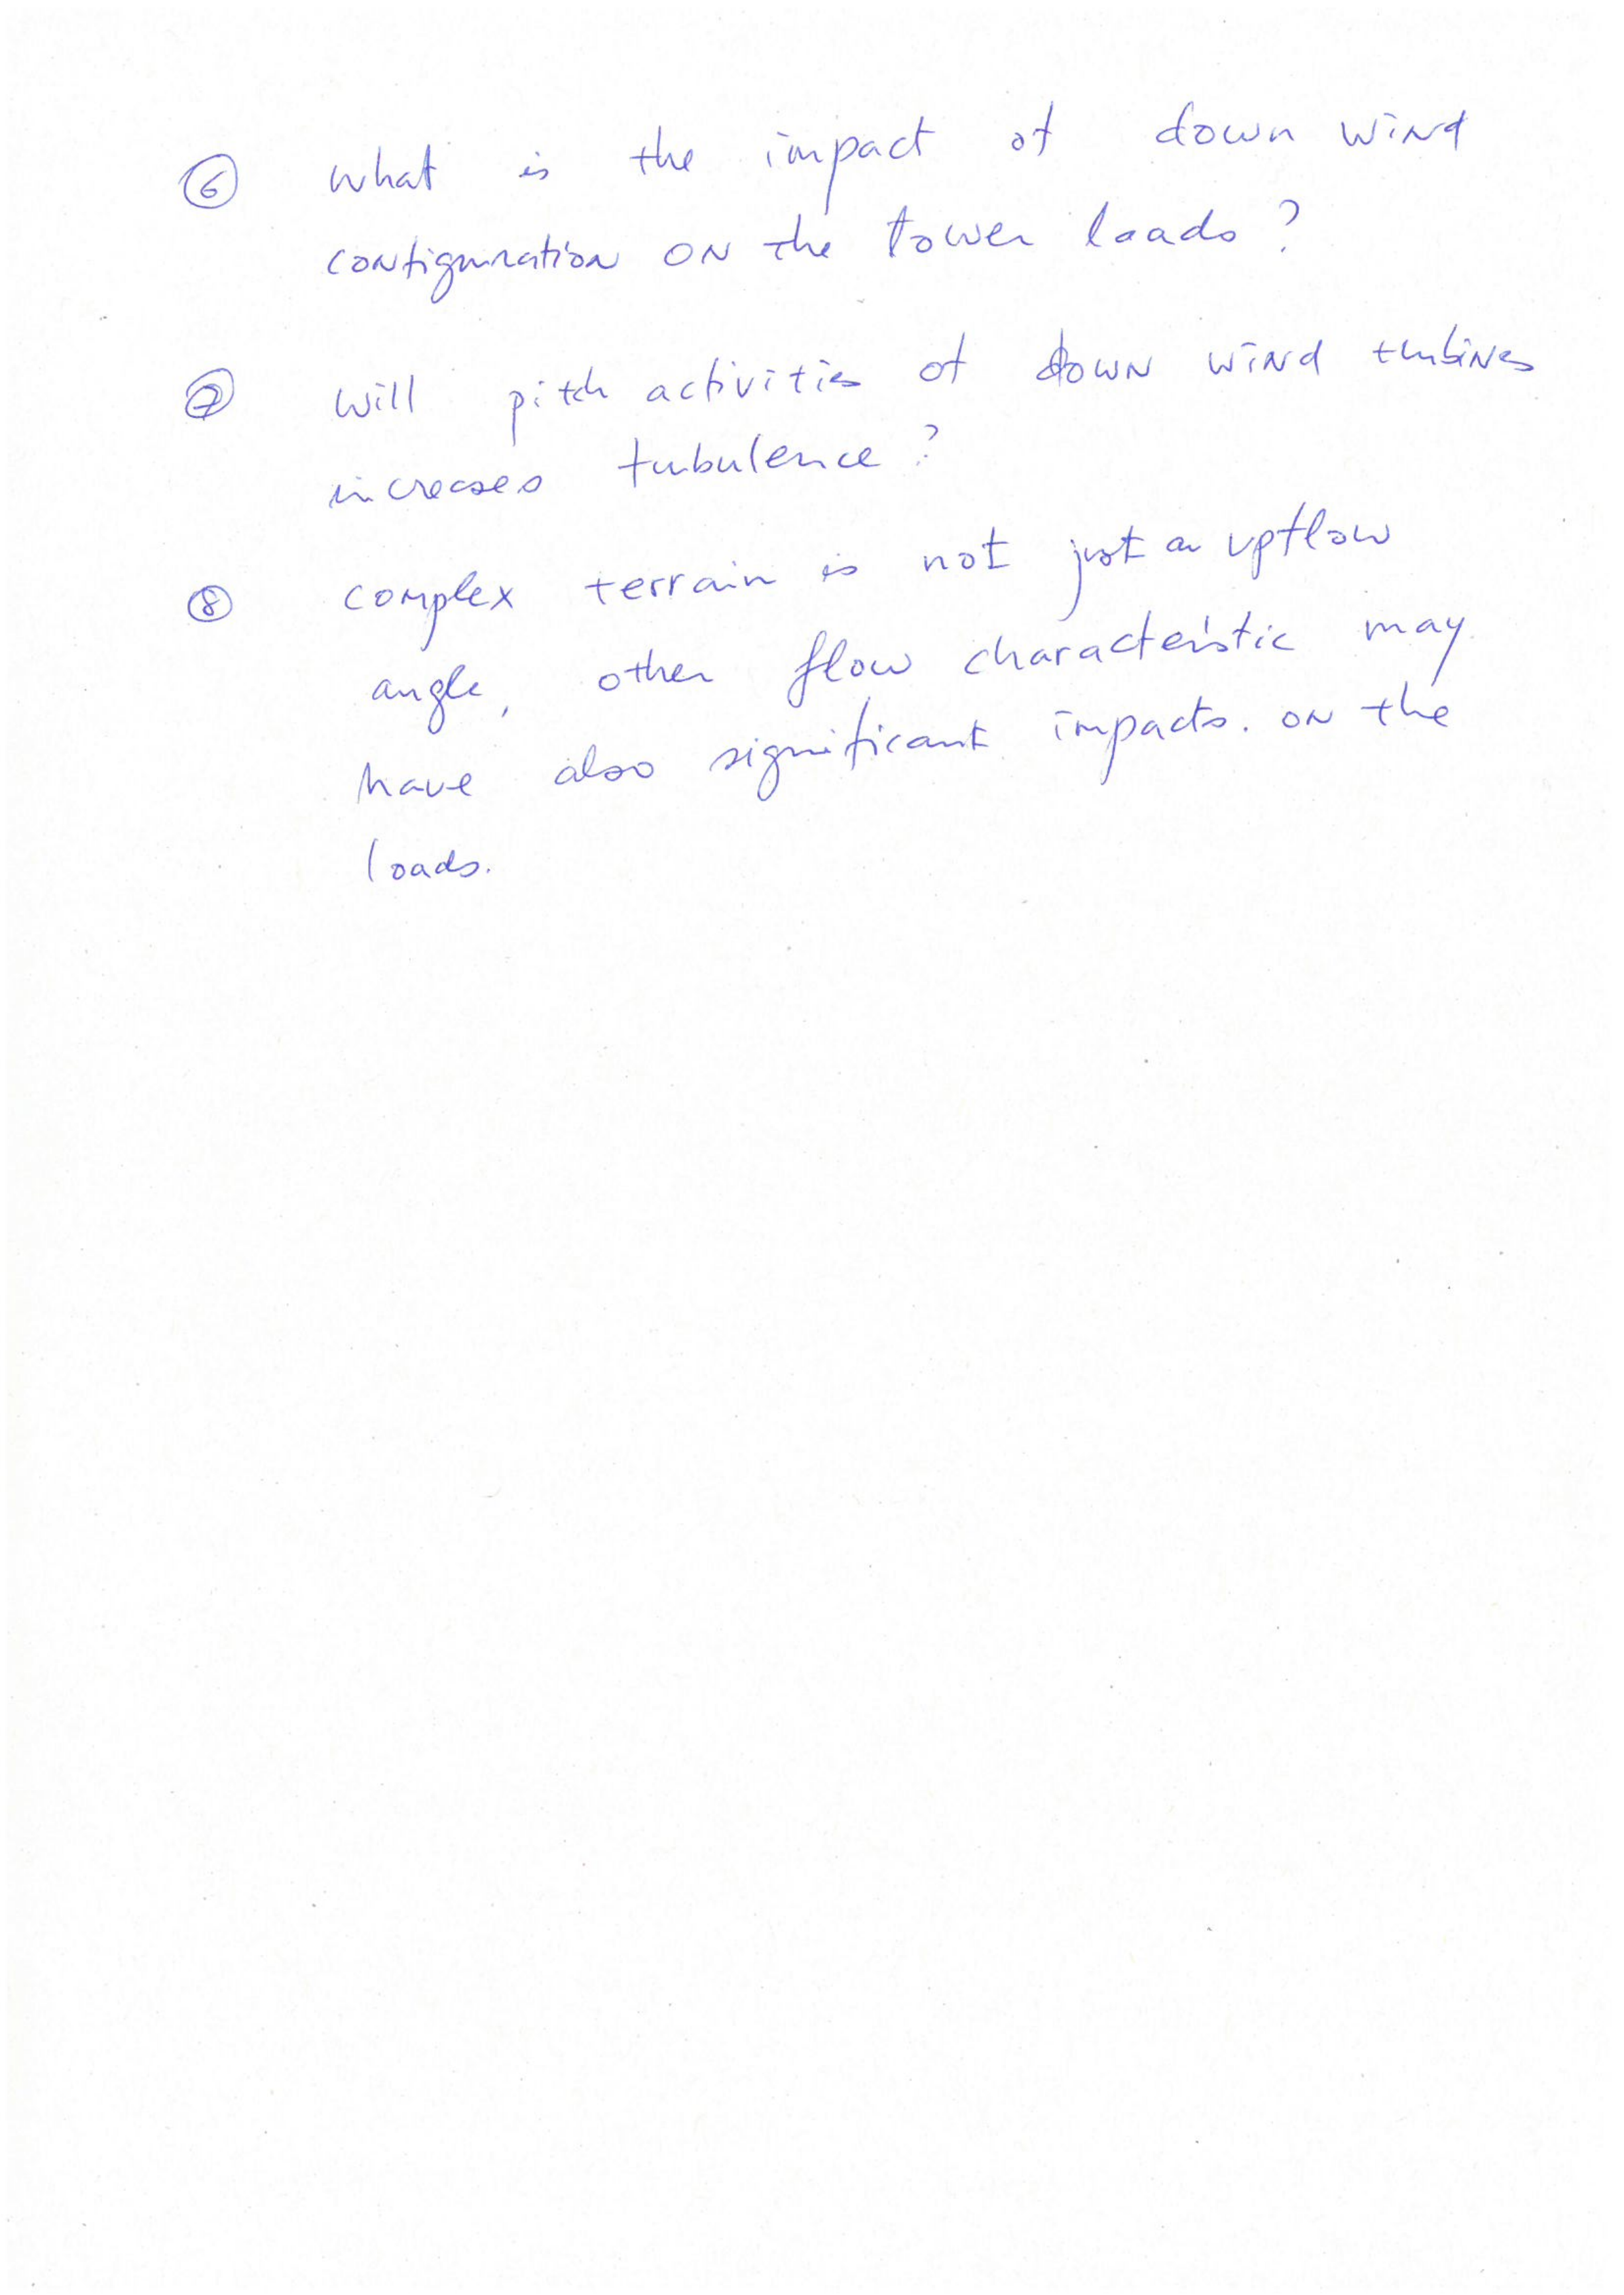 ⑥ what is the impact of down wind
configuration on the tower loads?
⑦ will pitch activities of down wind turbines
increases turbulence?
⑧ complex terrain is not just a upflow
angle, other flow characteristic may
have also significant impacts. on the
loads.